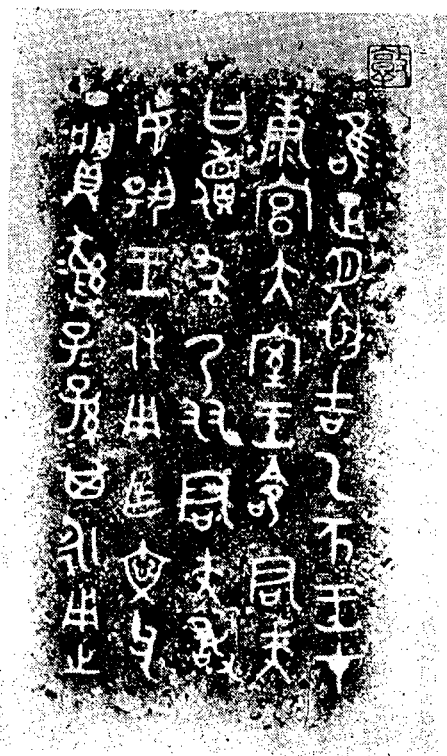 隹正月初吉乙亥王才
康宮大室王命君夫
曰儥求乃友君夫敢
妦揚王休用乍文父
丁𩰫彝子子孫孫其永用之